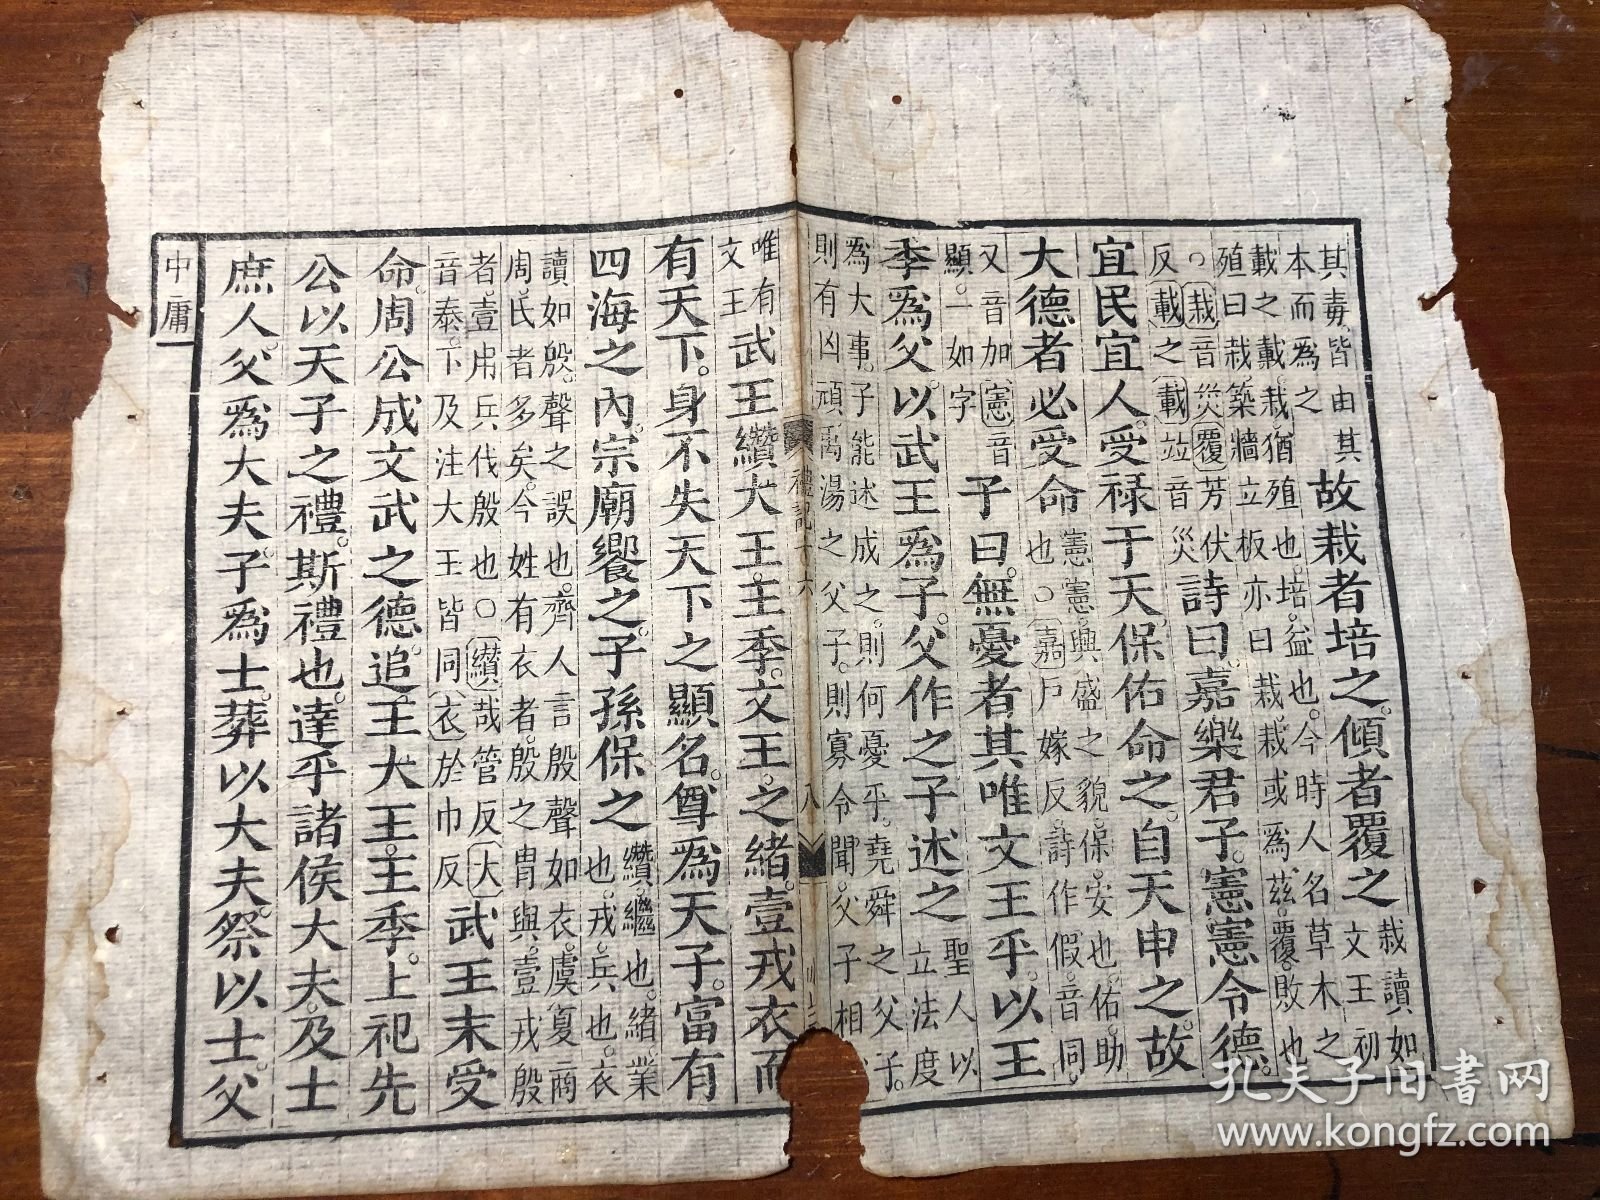 其毒皆由其
本而爲之
故栽者培之傾者覆之
栽讀如
文王初
載之載栽猶殖也培益也今時人名草木之
殖曰栽築牆立板亦曰栽栽或爲茲覆敗也
○栽音災覆芳伏
反載之載竝音災
詩曰嘉樂君子憲憲令德
宜民宜人受祿于天保佑命之自天申之故
大德者必受命
憲憲興盛之貌保安也佑助
也○嘉戶嫁反詩作假音同
又音加憲音
顯一如字
子曰無憂者其唯文王乎以王
季爲父以武王爲子父作之子述之
聖人以
立法度
爲大事子能述成之則何憂乎堯舜之父子
則有凶頑禹湯之父子則寡令聞父子相
禮記十六
八
唯有
文王
武王纘大王王季文王之緒壹戎衣而
有天下身不失天下之顯名尊爲天子富有
四海之內宗廟饗之子孫保之
纘繼也緒業
也戎兵也衣
讀如殷聲之誤也齊人言殷聲如衣虞夏商
周氏者多矣今姓有衣者殷之冑與壹戎殷
者壹用兵伐殷也○纘哉管反大
音泰下及注大王皆同衣於巾反
武王末受
命周公成文武之德追王大王王季上祀先
公以天子之禮斯禮也達乎諸侯大夫及士
庶人父爲大夫子爲士葬以大夫祭以士父
中庸
孔夫子旧書网
www.kongfz.com